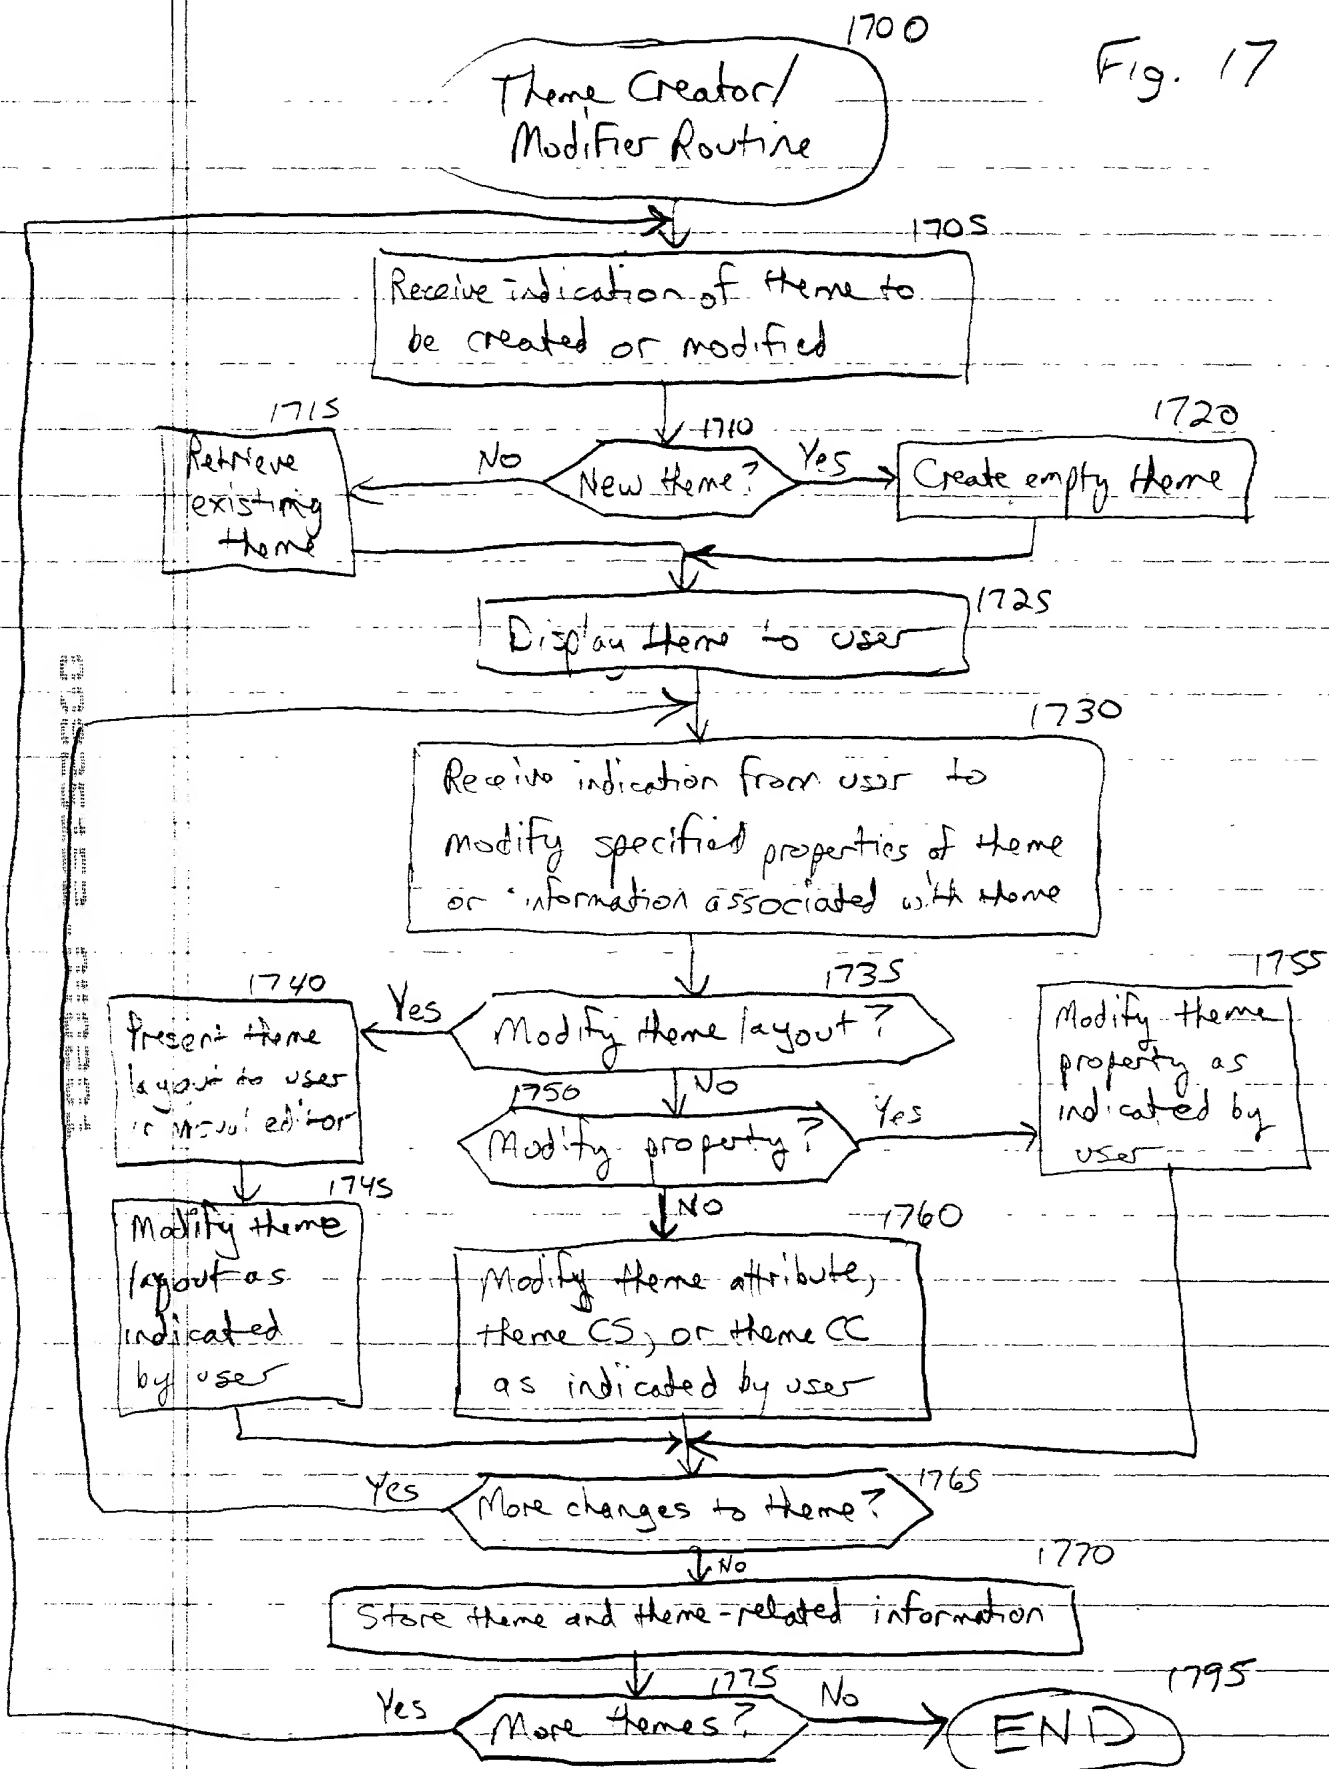 1700
Fig. 17
Theme Creator/
Modifier Routine
1705
Receive indication of theme to
be created or modified
1715
1710
1720
Retrieve
existing
theme
No
New theme?
Yes
Create empty theme
1725
Display theme to user
1730
Receive indication from user to
modify specified properties of theme
or information associated with theme
1740
1735
1755
Present theme
layout to user
in visual editor
Yes
Modify theme layout?
Modify theme
property as
indicated by
user
No
1750
Modify property?
Yes
No
1745
Modify theme
layout as
indicated
by user
1760
Modify theme attribute,
theme CS, or theme CC
as indicated by user
1765
Yes
More changes to theme?
No
1770
Store theme and theme-related information
1775
Yes
More themes?
No
1795
END